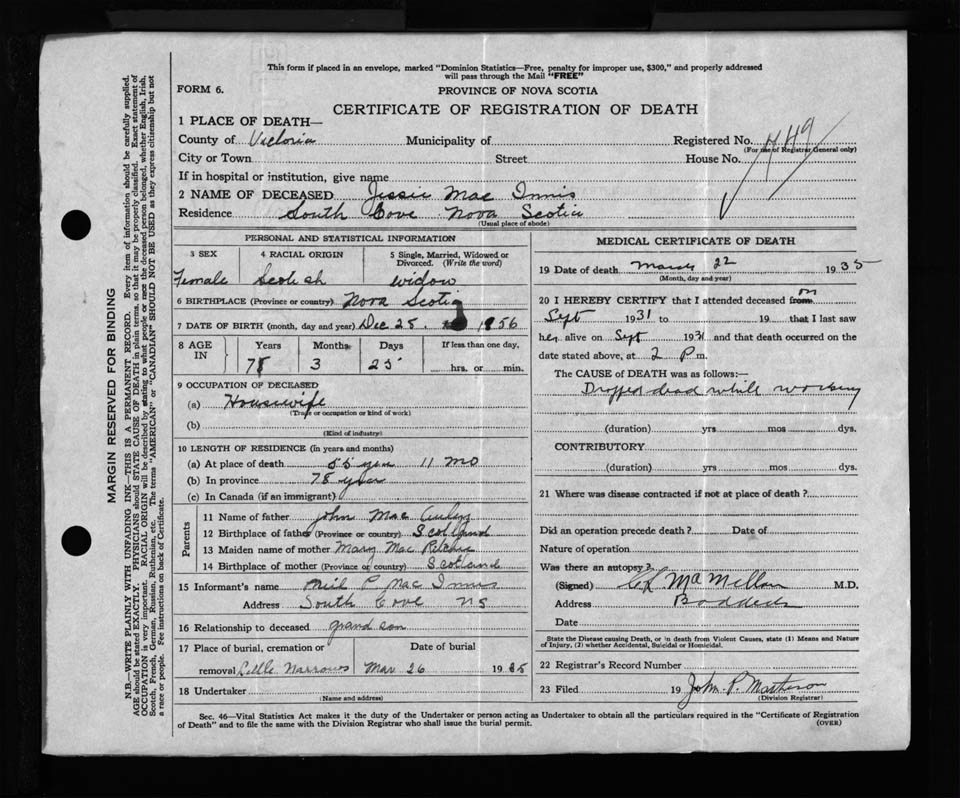 This form if placed in an envelope, marked "Dominion Statistics—Free, penalty for improper use, $300," and properly addressed
will pass through the Mail "FREE"
FORM 6.
PROVINCE OF NOVA SCOTIA
CERTIFICATE OF REGISTRATION OF DEATH
1 PLACE OF DEATH—
County of Victoria Municipality of Registered No. 449
(For use of Registrar General only)
City or Town Street House No.
If in hospital or institution, give name
2 NAME OF DECEASED Jessie Mac Innis
Residence South Cove Nova Scotia
(Usual place of abode)
PERSONAL AND STATISTICAL INFORMATION
3 SEX 4 RACIAL ORIGIN 5 Single, Married, Widowed or Divorced. (Write the word)
Female Scotish widow
6 BIRTHPLACE (Province or country) Nova Scotia
7 DATE OF BIRTH (month, day and year) Dec 25. 1856
8 AGE IN Years Months Days If less than one day,
78 3 25 hrs. or min.
9 OCCUPATION OF DECEASED
(a) Housewife
(Trade or occupation or kind of work)
(b)
(Kind of industry)
10 LENGTH OF RESIDENCE (in years and months)
(a) At place of death 55 years 11 mo
(b) In province 78 year
(c) In Canada (if an immigrant)
Parents
11 Name of father John Mac Auley
12 Birthplace of father (Province or country) Scotland
13 Maiden name of mother Mary Mac Ritchie
14 Birthplace of mother (Province or country) Scotland
15 Informant's name Neil P Mac Innis
Address South Cove NS
16 Relationship to deceased grand son
17 Place of burial, cremation or Date of burial
removal Little Narrows Mar 26 1935
18 Undertaker
(Name and address)
MEDICAL CERTIFICATE OF DEATH
19 Date of death March 22 1935
(Month, day and year)
20 I HEREBY CERTIFY that I attended deceased from on
Sept 1931 to 19 that I last saw
her alive on Sept 1931 and that death occurred on the
date stated above, at 2 P m.
The CAUSE of DEATH was as follows:
Dropped dead while working
(duration) yrs mos dys.
CONTRIBUTORY
(duration) yrs mos dys.
21 Where was disease contracted if not at place of death?
Did an operation precede death? Date of
Nature of operation
Was there an autopsy?
(Signed) MacMillan M.D.
Address Baddeck
Date
State the Disease causing Death, or in death from Violent Causes, state (1) Means and Nature
of Injury, (2) whether Accidental, Suicidal or Homicidal.
22 Registrar's Record Number
23 Filed 19 John P. Matheson
(Division Registrar)
Sec. 46—Vital Statistics Act makes it the duty of the Undertaker or person acting as Undertaker to obtain all the particulars required in the "Certificate of Registration
of Death" and to file the same with the Division Registrar who shall issue the burial permit.
(OVER)
MARGIN RESERVED FOR BINDING
N.B.—WRITE PLAINLY WITH UNFADING INK—THIS IS A PERMANENT RECORD. Every item of information should be carefully supplied.
AGE should be stated EXACTLY. PHYSICIANS should STATE CAUSE OF DEATH in plain terms, so that it may be properly classified. Exact statement of
OCCUPATION is very important. RACIAL ORIGIN will be described by stating to what people or race the deceased person belonged, whether English, Irish,
Scotch, French, German, Russian, Ruthenian, etc. The terms "AMERICAN" or "CANADIAN" SHOULD NOT BE USED as they express citizenship but not
a race or people. Fee instructions on back of Certificate.